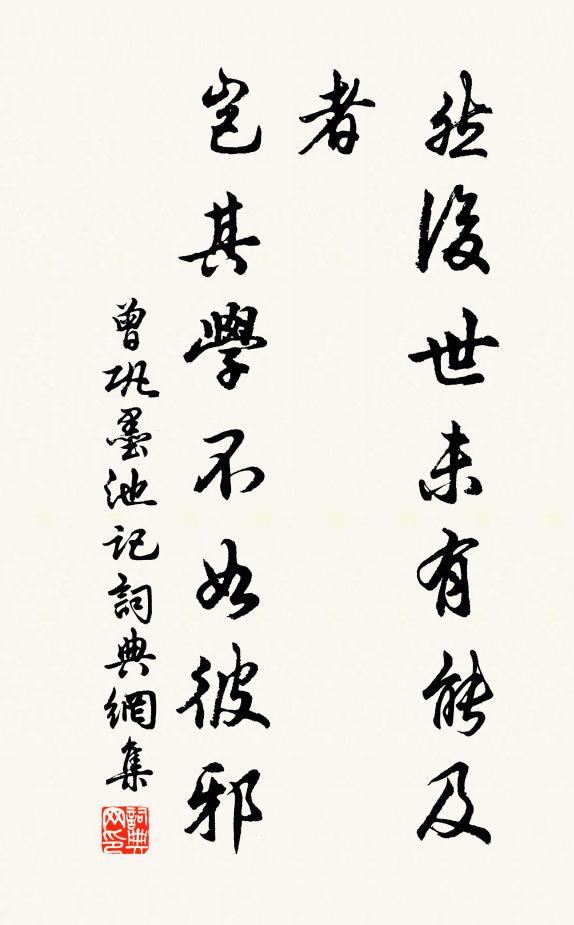 然後世未有能及
者
豈其學不如彼邪
曾巩墨池記詞典網集
詞典网印